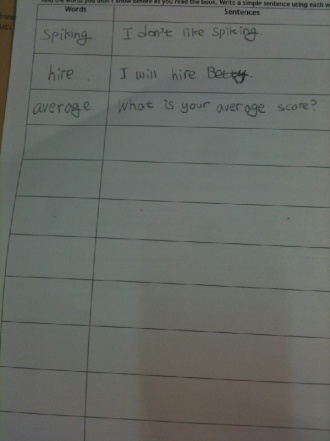 find the words you didn't know before as you read the book. Write a simple sentence using each w
Words Sentences
Spiking I don't like Spiking.
hire. I will hire Betty
average What is your average score?